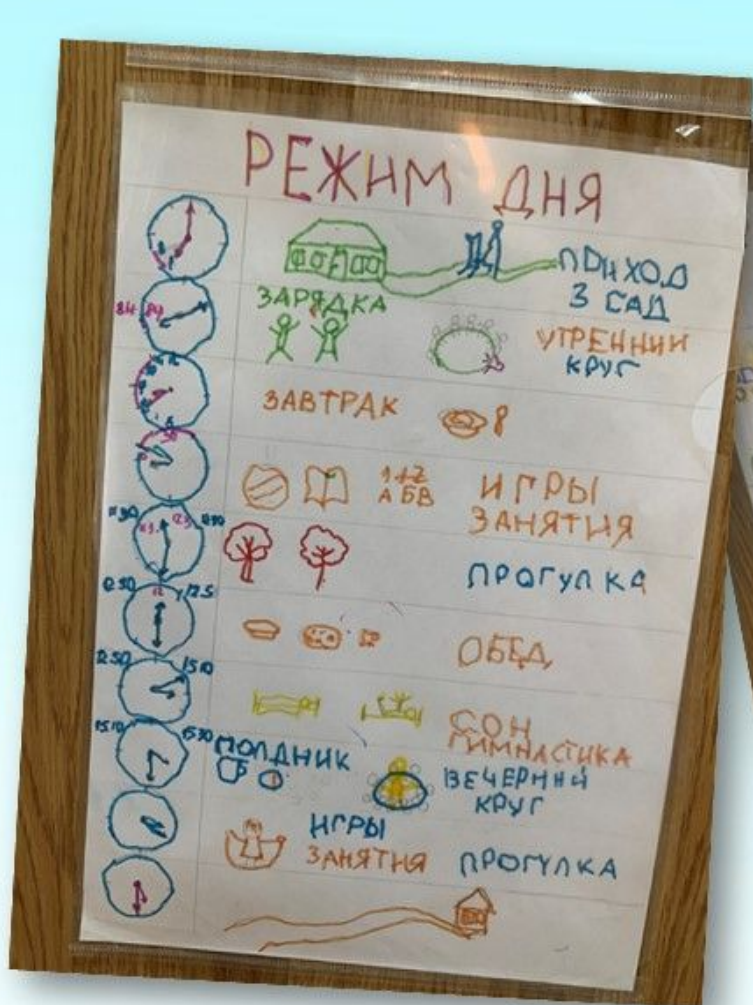 РЕЖИМ ДНЯ
ПРИХОД
В САД
ЗАРЯДКА
УТРЕННИЙ
КРУГ
ЗАВТРАК
А БВ
ИГРЫ
ЗАНЯТИЯ
1130
ПРОГУЛКА
1250
ОБЕД
1250
1510
СОН
ГИМНАСТИКА
1510
1530
ПОЛДНИК
ВЕЧЕРНИЙ
КРУГ
ИГРЫ
ЗАНЯТИЯ
ПРОГУЛКА